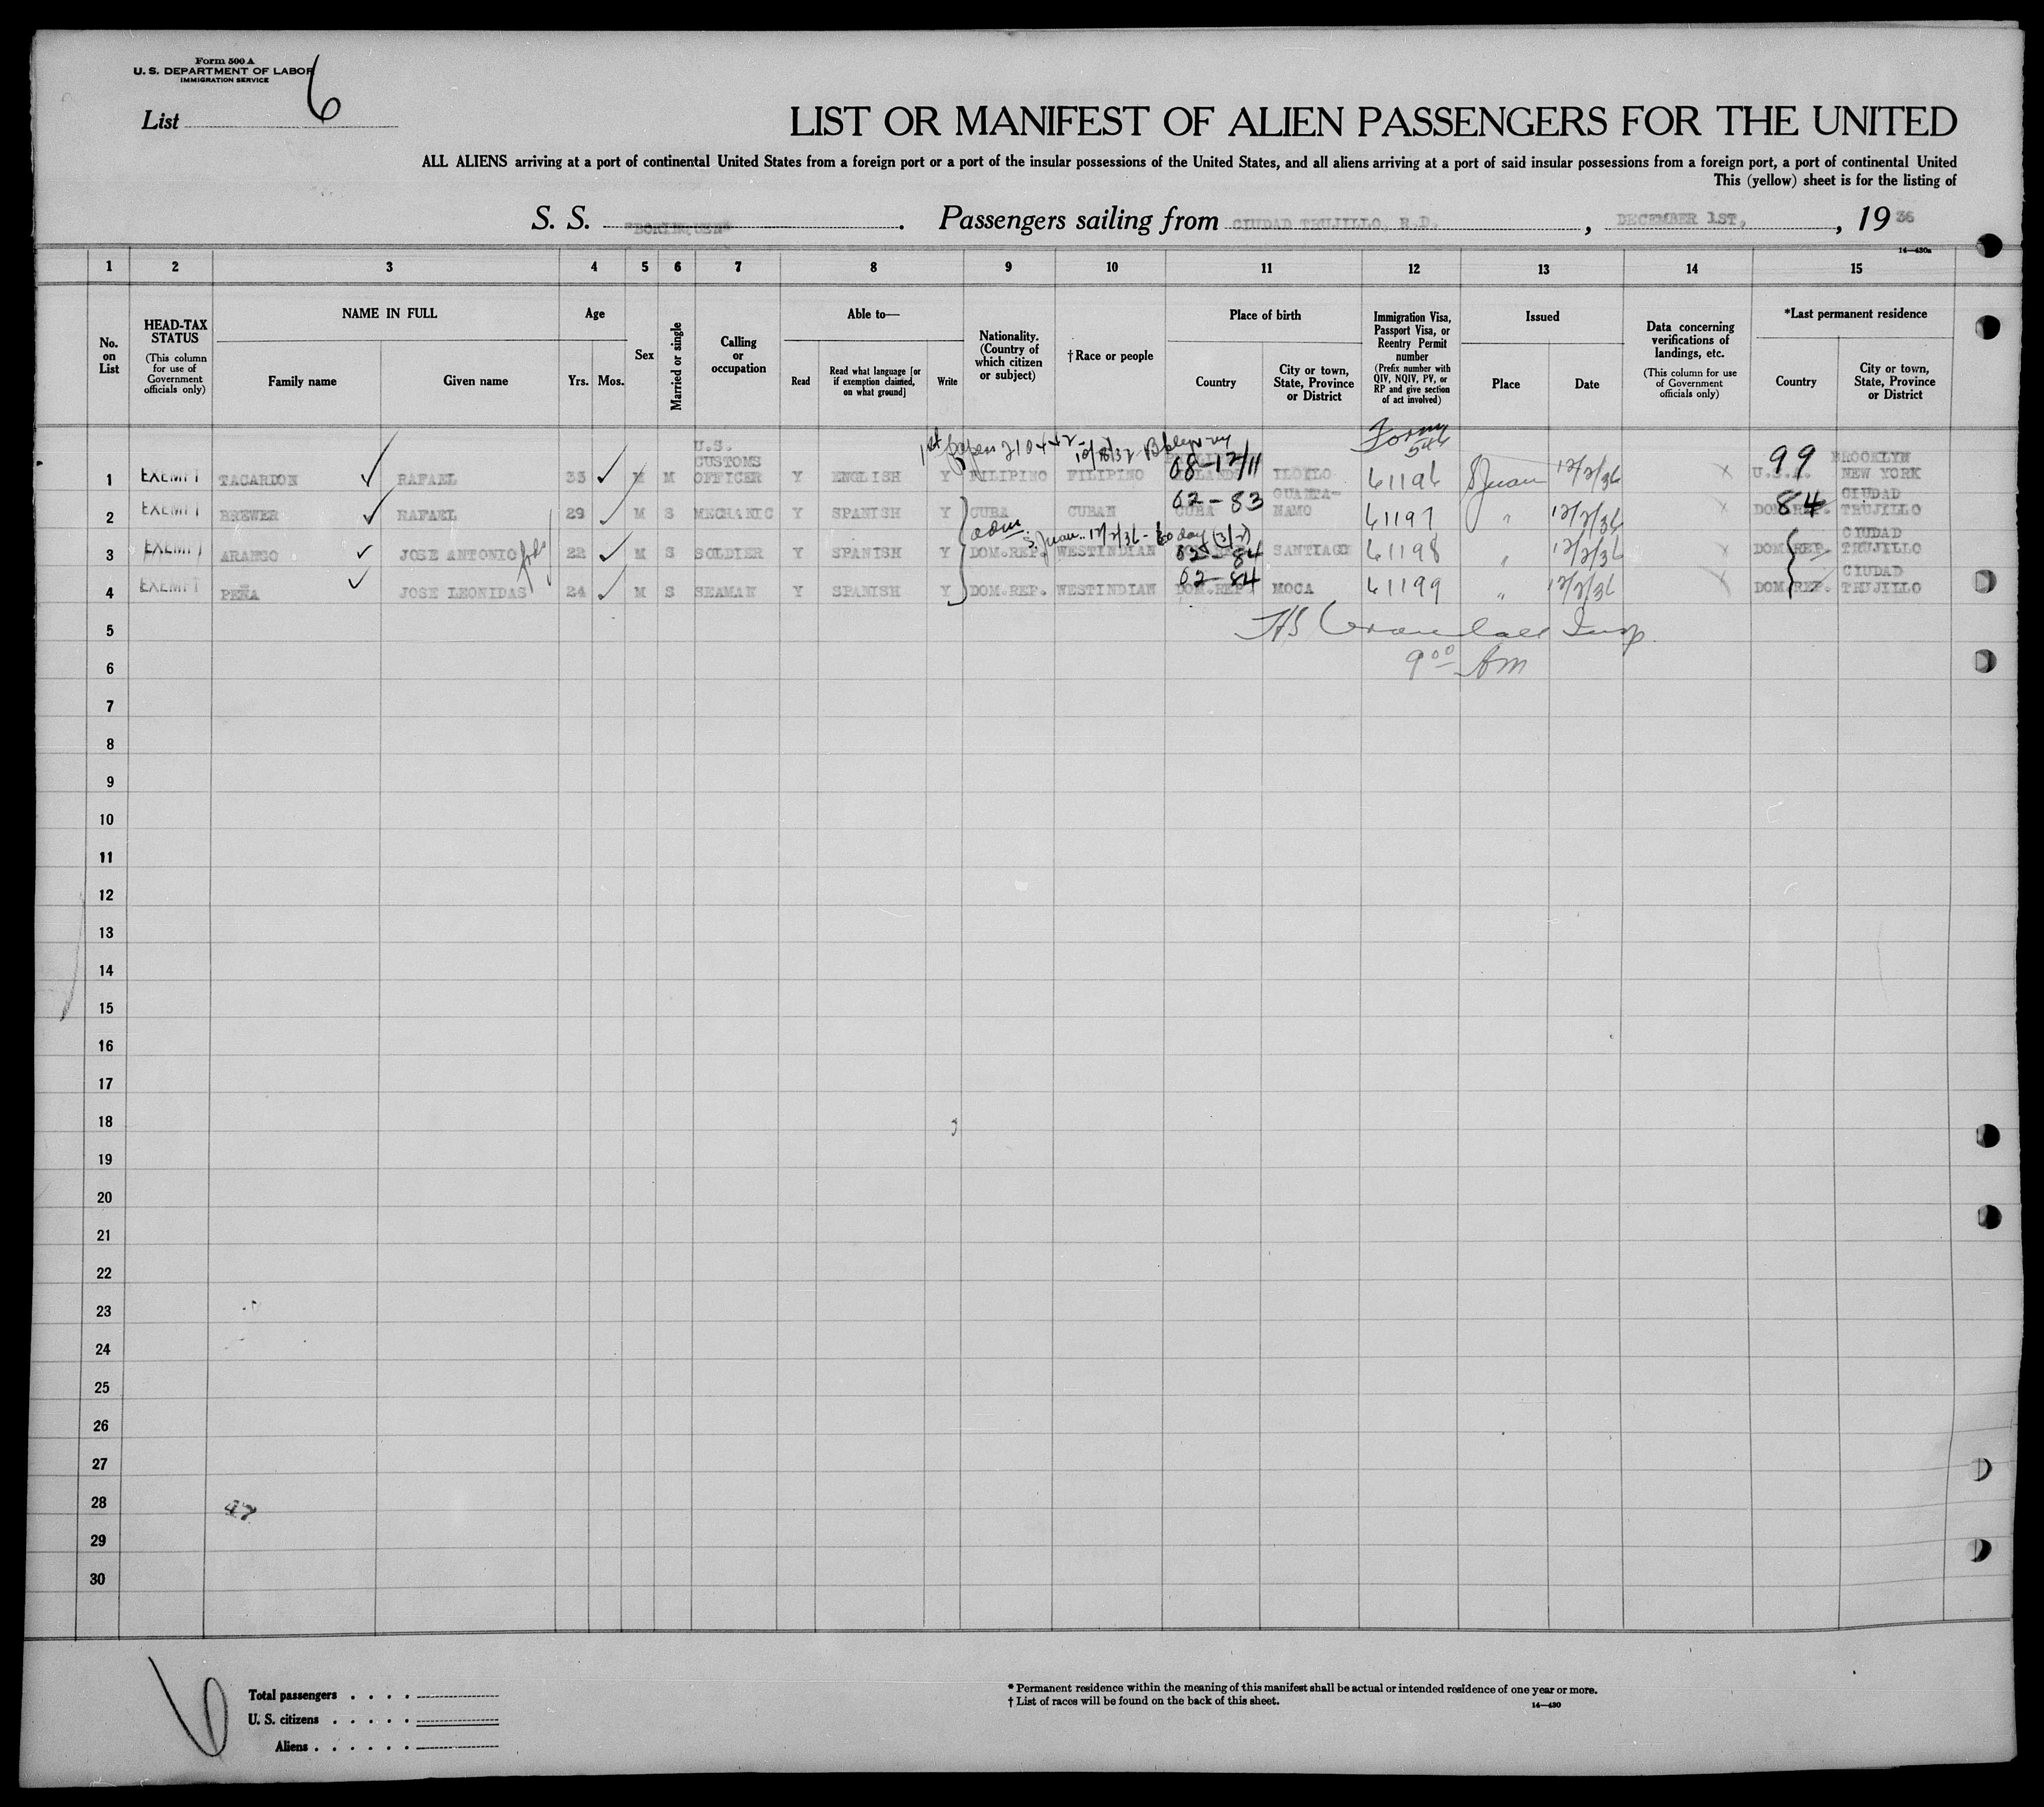 Form 500 A
U. S. DEPARTMENT OF LABOR
IMMIGRATION SERVICE
List 6
LIST OR MANIFEST OF ALIEN PASSENGERS FOR THE UNITED
ALL ALIENS arriving at a port of continental United States from a foreign port or a port of the insular possessions of the United States, and all aliens arriving at a port of said insular possessions from a foreign port, a port of continental United
This (yellow) sheet is for the listing of
S. S. "BORINQUEN". Passengers sailing from CIUDAD TRUJILLO, R.D., DECEMBER 1ST, 1936
14—430a
1 2 3 4 5 6 7 8 9 10 11 12 13 14 15
No. on List
HEAD-TAX STATUS
(This column for use of Government officials only)
NAME IN FULL
Family name Given name
Age
Yrs. Mos.
Sex
Married or single
Calling or occupation
Able to—
Read
Read what language [or if exemption claimed, on what ground]
Write
Nationality. (Country of which citizen or subject)
†Race or people
Place of birth
Country
City or town, State, Province or District
Immigration Visa, Passport Visa, or Reentry Permit number
(Prefix number with QIV, NQIV, PV, or RP and give section of act involved)
Issued
Place Date
Data concerning verifications of landings, etc.
(This column for use of Government officials only)
*Last permanent residence
Country
City or town, State, Province or District
1st papers 210442- 10/18/32 Bklyn ny
Form 546
1 EXEMPT TACARDON RAFAEL 33 M M U.S. CUSTOMS OFFICER Y ENGLISH Y FILIPINO FILIPINO 08-12/11 ILOYLO 61196 S Juan 12/2/36 x 99 U.S.A. BROOKLYN NEW YORK
2 EXEMPT BREWER RAFAEL 29 M S MECHANIC Y SPANISH Y CUBA CUBAN 02-83 CUBA GUANTA-NAMO 61197 " 12/2/36 x 84 DOM.REP. CIUDAD TRUJILLO
adm. S. Juan.. 12/2/36 - 60 day (3/2)
3 EXEMPT ARANGO JOSE ANTONIO 22 M S SOLDIER Y SPANISH Y DOM.REP. WESTINDIAN 02-84 SANTIAGO 61198 " 12/2/36 x DOM.REP. CIUDAD TRUJILLO
4 EXEMPT PEÑA JOSE LEONIDAS 24 M S SEAMAN Y SPANISH Y DOM.REP. WESTINDIAN 02-84 DOM.REP. MOCA 61199 " 12/2/36 DOM.REP. CIUDAD TRUJILLO
5 Insp.
6 9⁰⁰ Am
7
8
9
10
11
12
13
14
15
16
17
18
19
20
21
22
23
24
25
26
27
28 47
29
30
6
Total passengers . . . .
U. S. citizens . . . . .
Aliens . . . . . .
* Permanent residence within the meaning of this manifest shall be actual or intended residence of one year or more.
† List of races will be found on the back of this sheet.
14—430